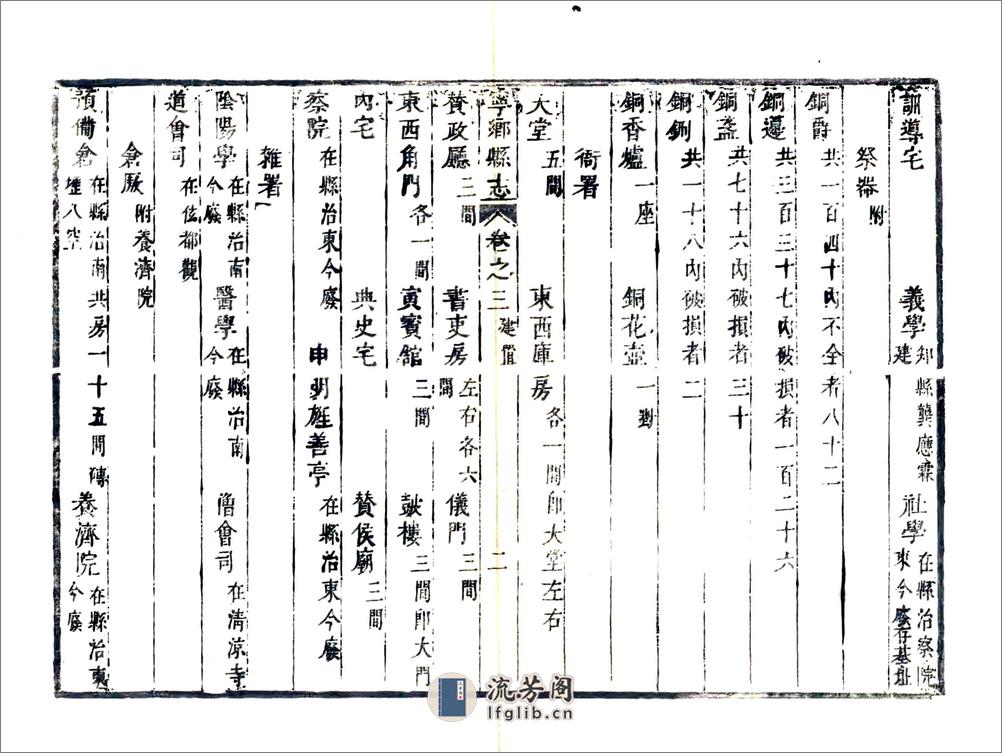 訓導宅 義學 知縣龔應霖建 社學 在縣治察院東今廢存基址
祭器 附
銅爵 共一百四十內不全者八十二
銅籩 共三百三十七內破損者一百二十六
銅盞 共七十六內破損者三十
銅鉶 共一十八內破損者二
銅香爐 一座 銅花壺 一對
衙署
大堂 五間 東西庫房 各一間即大堂左右
寧鄉縣志 卷之三 建置 二
贊政廳 三間 書吏房 左右各六間 儀門 三間
東西角門 各一間 寅賓館 三間 鼓樓 三間即大門
內宅 典史宅 贊侯廟 三間
察院 在縣治東今廢 申明旌善亭 在縣治東今廢
雜署
陰陽學 在縣治南今廢 醫學 在縣治南今廢 僧會司 在清涼寺
道會司 在佐都觀
倉厫 附養濟院
預備倉 在縣治南共房一十五間磚壇八空 養濟院 在縣治東今廢
流芳阁
lfglib.cn